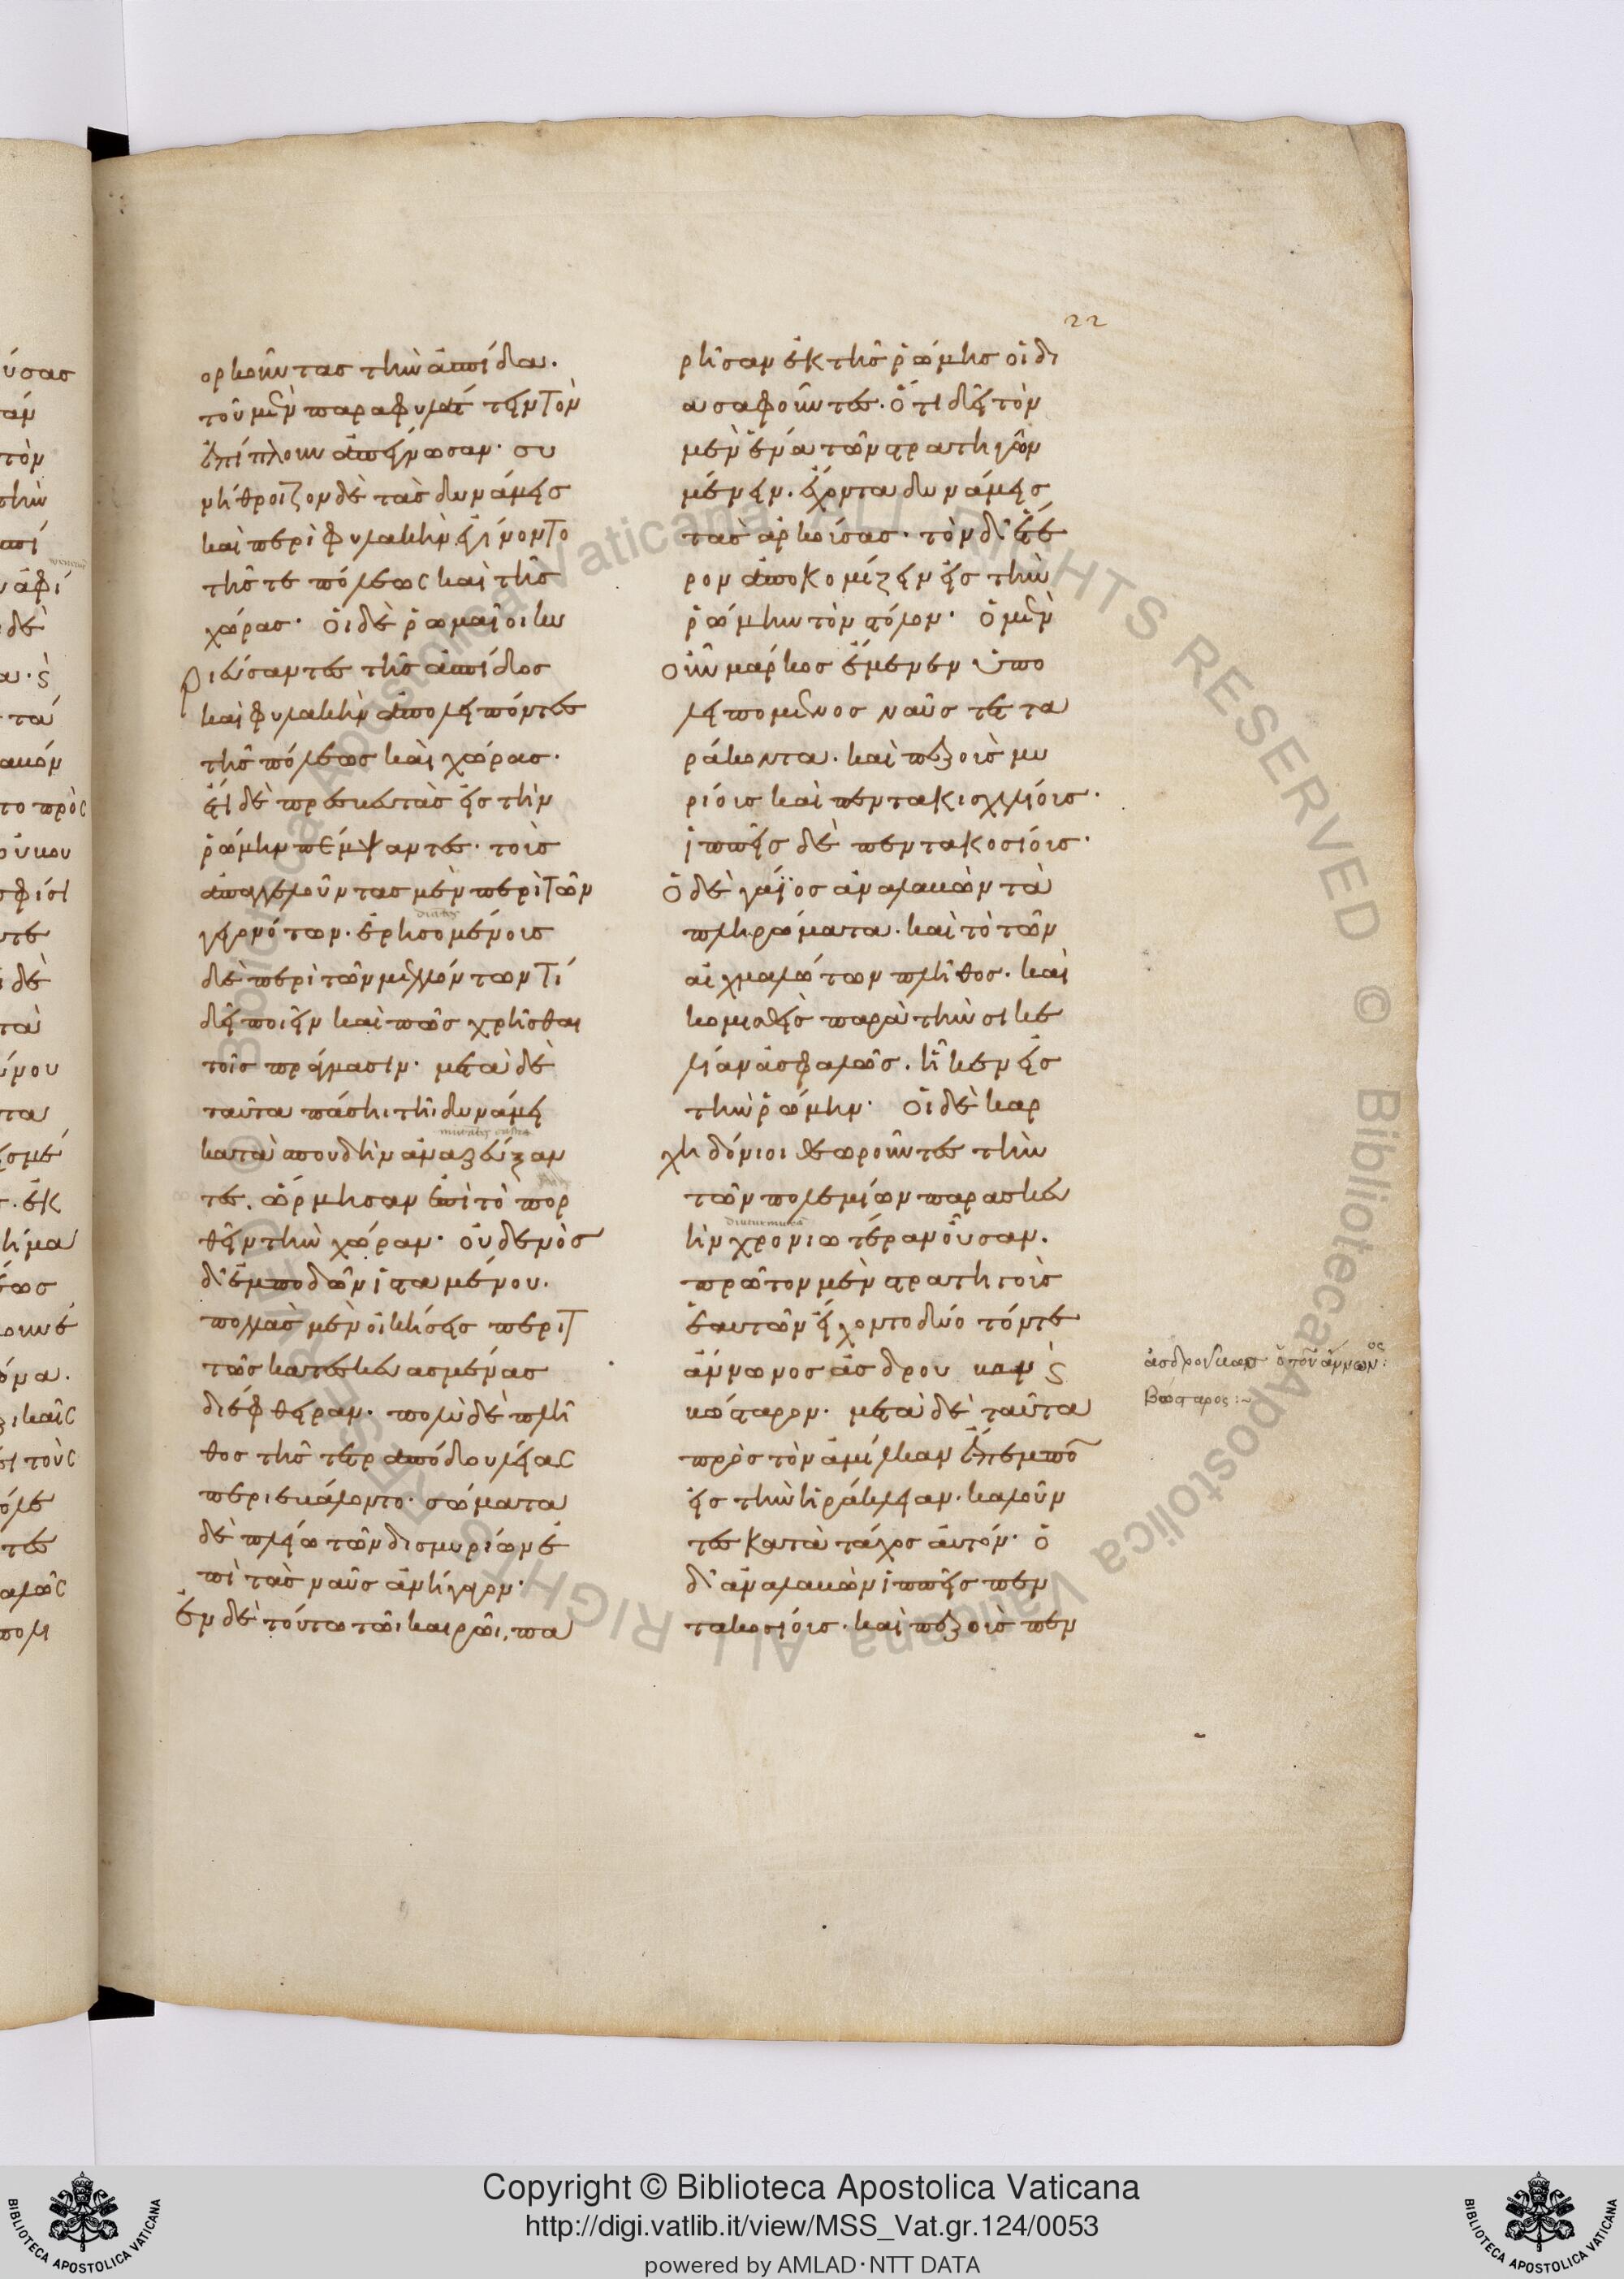 22
ορκοῦντας τὴν ἀσπίδα.
τοῦ μὲν παραφυλάττειν τὸν
ἐπίπλουν ἀπέγνωσαν· συ
νήθροιζον δὲ τὰς δυνάμεις
καὶ περὶ φυλακὴν ἐγίνοντο
τῆς τε πόλεως καὶ τῆς
χώρας· οἱ δὲ ῥωμαῖοι κυ
ριεύσαντες τῆς ἀσπίδος
καὶ φυλακὴν ἀπολειπόντες
τῆς πόλεως καὶ χώρας·
ἔτι δὲ πρεσβευτὰς εἰς τὴν
ῥώμην πέμψαντες· τοὺς
ἀπαγγελοῦντας μὲν περὶ τῶν
γεγονότων· ἐρησομένους
δὲ περὶ τῶν μελλόντων τί
δεῖ ποιεῖν καὶ πῶς χρῆσθαι
τοῖς πράγμασιν· μετὰ δὲ
ταῦτα πάσηι τῆι δυνάμει
κατὰ σπουδὴν ἀναζεύξαν
τες. ὥρμησαν ἐπὶ τὸ πορ
θεῖν τὴν χώραν· οὐδενὸς
δ' ἐμποδὼν ἱσταμένου.
πολλὰς μὲν οἰκήσεις περιτ
τῶς κατεσκευασμένας
διέφθειραν· πολὺ δὲ πλῆ
θος τῆς τετραπόδου λείας
περιεβάλοντο· σώματα
δὲ πλείω τῶν δισμυρίων ἐ
πὶ τὰς ναῦς ἀνήγαγον·
ἐν δὲ τούτω τῶι καιρῶι, πα
ρῆσαν ἐκ τῆς ῥώμης οἱ δι
ασαφοῦντες· ὅτι δεῖ τὸν
μὲν ἕνα τῶν στρατηγῶν
μένειν. ἔχοντα δυνάμεις
τὰς ἀρκούσας· τὸν δ' ἕτε
ρον ἀποκομίζειν εἰς τὴν
ῥώμην τὸν στόλον· ὁ μὲν
οὖν μάρκος ἔμενεν ὑπο
λειπόμενος ναῦς τετ τα
ράκοντα. καὶ πεζοὺς μυ
ρίους καὶ πεντακισχιλίους·
ἱππεῖς δὲ πεντακοσίους·
ὁ δὲ γάϊος ἀναλαβὼν τὰ
πληρώματα. καὶ τὸ τῶν
αἰχμαλώτων πλῆθος. καὶ
κομισθεὶς παρὰ τὴν σικε
λίαν ἀσφαλῶς. ἧκεν εἰς
τὴν ῥώμην· οἱ δὲ καρ
χηδόνιοι θεωροῦντες τὴν
τῶν πολεμίων παρασκευ
ὴν χρονιωτέραν οὖσαν.
πρῶτον μὲν στρατηγοὺς
ἑαυτῶν εἵλοντο δύο τόν τε
ἄννωνος ἀσδρού καὶ
βώσταρον· μετὰ δὲ ταῦτα
πρὸς τὸν ἀμίλκαν ἔπεμπον
εἰς τὴν ἡράκλειαν. καλοῦν
τες κατὰ τάχος αὐτόν· ὁ
δ' ἀναλαβὼν ἱππεῖς πεν
τακοσίους. καὶ πεζοὺς πεν
ἀσδρούβας ὁ τοῦ ἄννωνος:
Βώσταρος:~
Copyright © Biblioteca Apostolica Vaticana
http://digi.vatlib.it/view/MSS_Vat.gr.124/0053
powered by AMLAD·NTT DATA
BIBLIOTECA APOSTOLICA VATICANA
BIBLIOTECA APOSTOLICA VATICANA